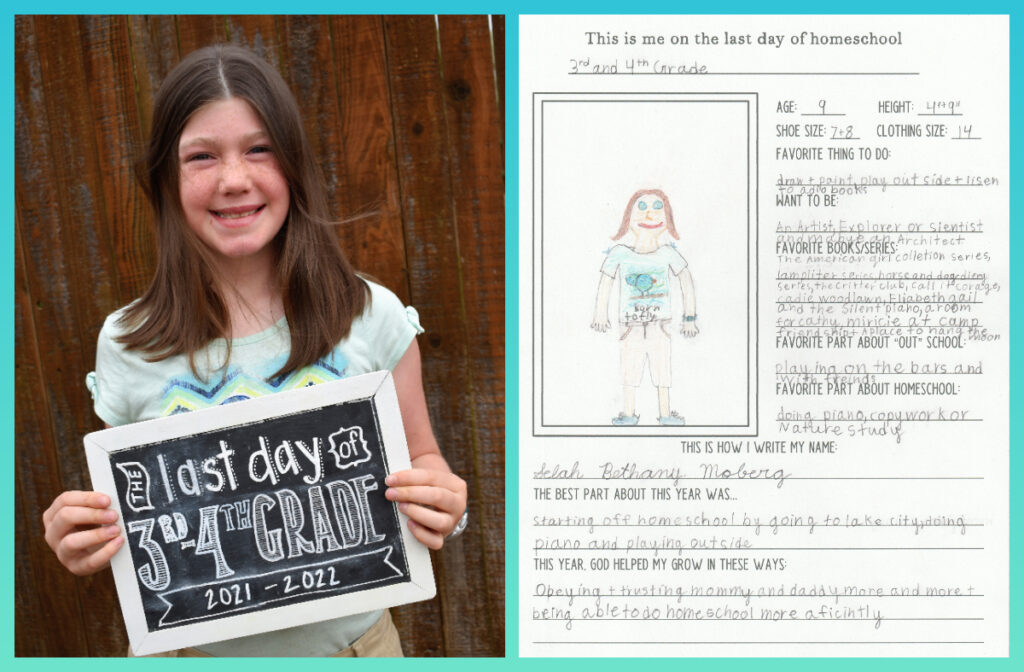 THE last day of
3RD-4TH GRADE
2021-2022
This is me on the last day of homeschool
3rd and 4th Grade
AGE: 9 HEIGHT: 4ft9"
SHOE SIZE: 7+8 CLOTHING SIZE: 14
FAVORITE THING TO DO:
draw + paint, play out side + lisen
to adio books
WANT TO BE:
An Artist, Explorer or sientist
and mabye an Architect
FAVORITE BOOKS/SERIES:
The American girl colletion series,
lampliter series, horse and dog diery
series, the critter club, call it corage,
cadie woodlawn, Eliabeth gail
and the silent piano, a room
for cathy, miricie at camp
friendship + A place to hang the
moon
FAVORITE PART ABOUT "OUT" SCHOOL:
playing on the bars and
with freinds
FAVORITE PART ABOUT HOMESCHOOL:
doing piano, copy work or
Nature study
born
to fly
THIS IS HOW I WRITE MY NAME:
Selah Bethany Moberg
THE BEST PART ABOUT THIS YEAR WAS...
starting off homeschool by going to lake city, doing
piano and playing outside
THIS YEAR, GOD HELPED MY GROW IN THESE WAYS:
Obeying + trusting mommy and daddy more and more +
being able to do homeschool more aficintly